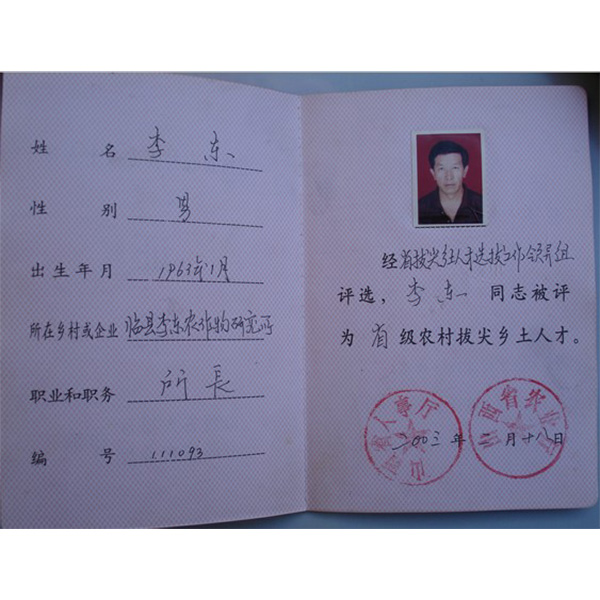 姓 名 李 东
性 别 男
出生年月 1963年1月
所在乡村或企业 临县李东农作物研究所
职业和职务 所 長
编 号 111093
经省拔尖乡土人才选拔工作领导组
评选， 李 东 同志被评
为 省 级农村拔尖乡土人才。
山西省人事厅
山西省农业厅
二00三 年 二 月 十八日